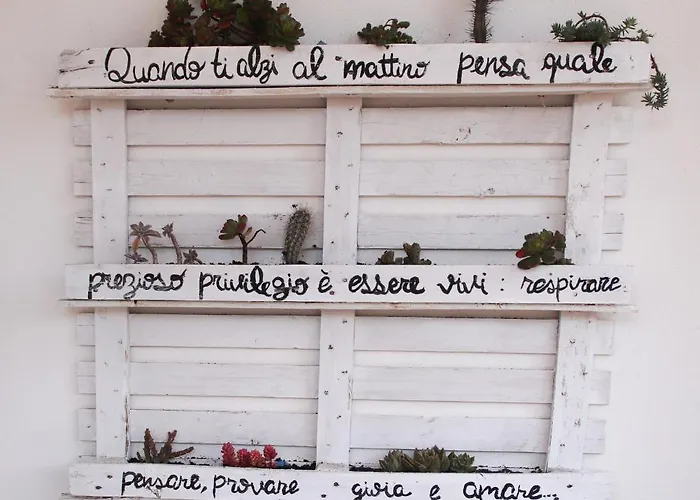 Quando ti alzi al mattino pensa quale
prezioso privilegio è essere vivi : respirare
pensare, provare gioia e amare...